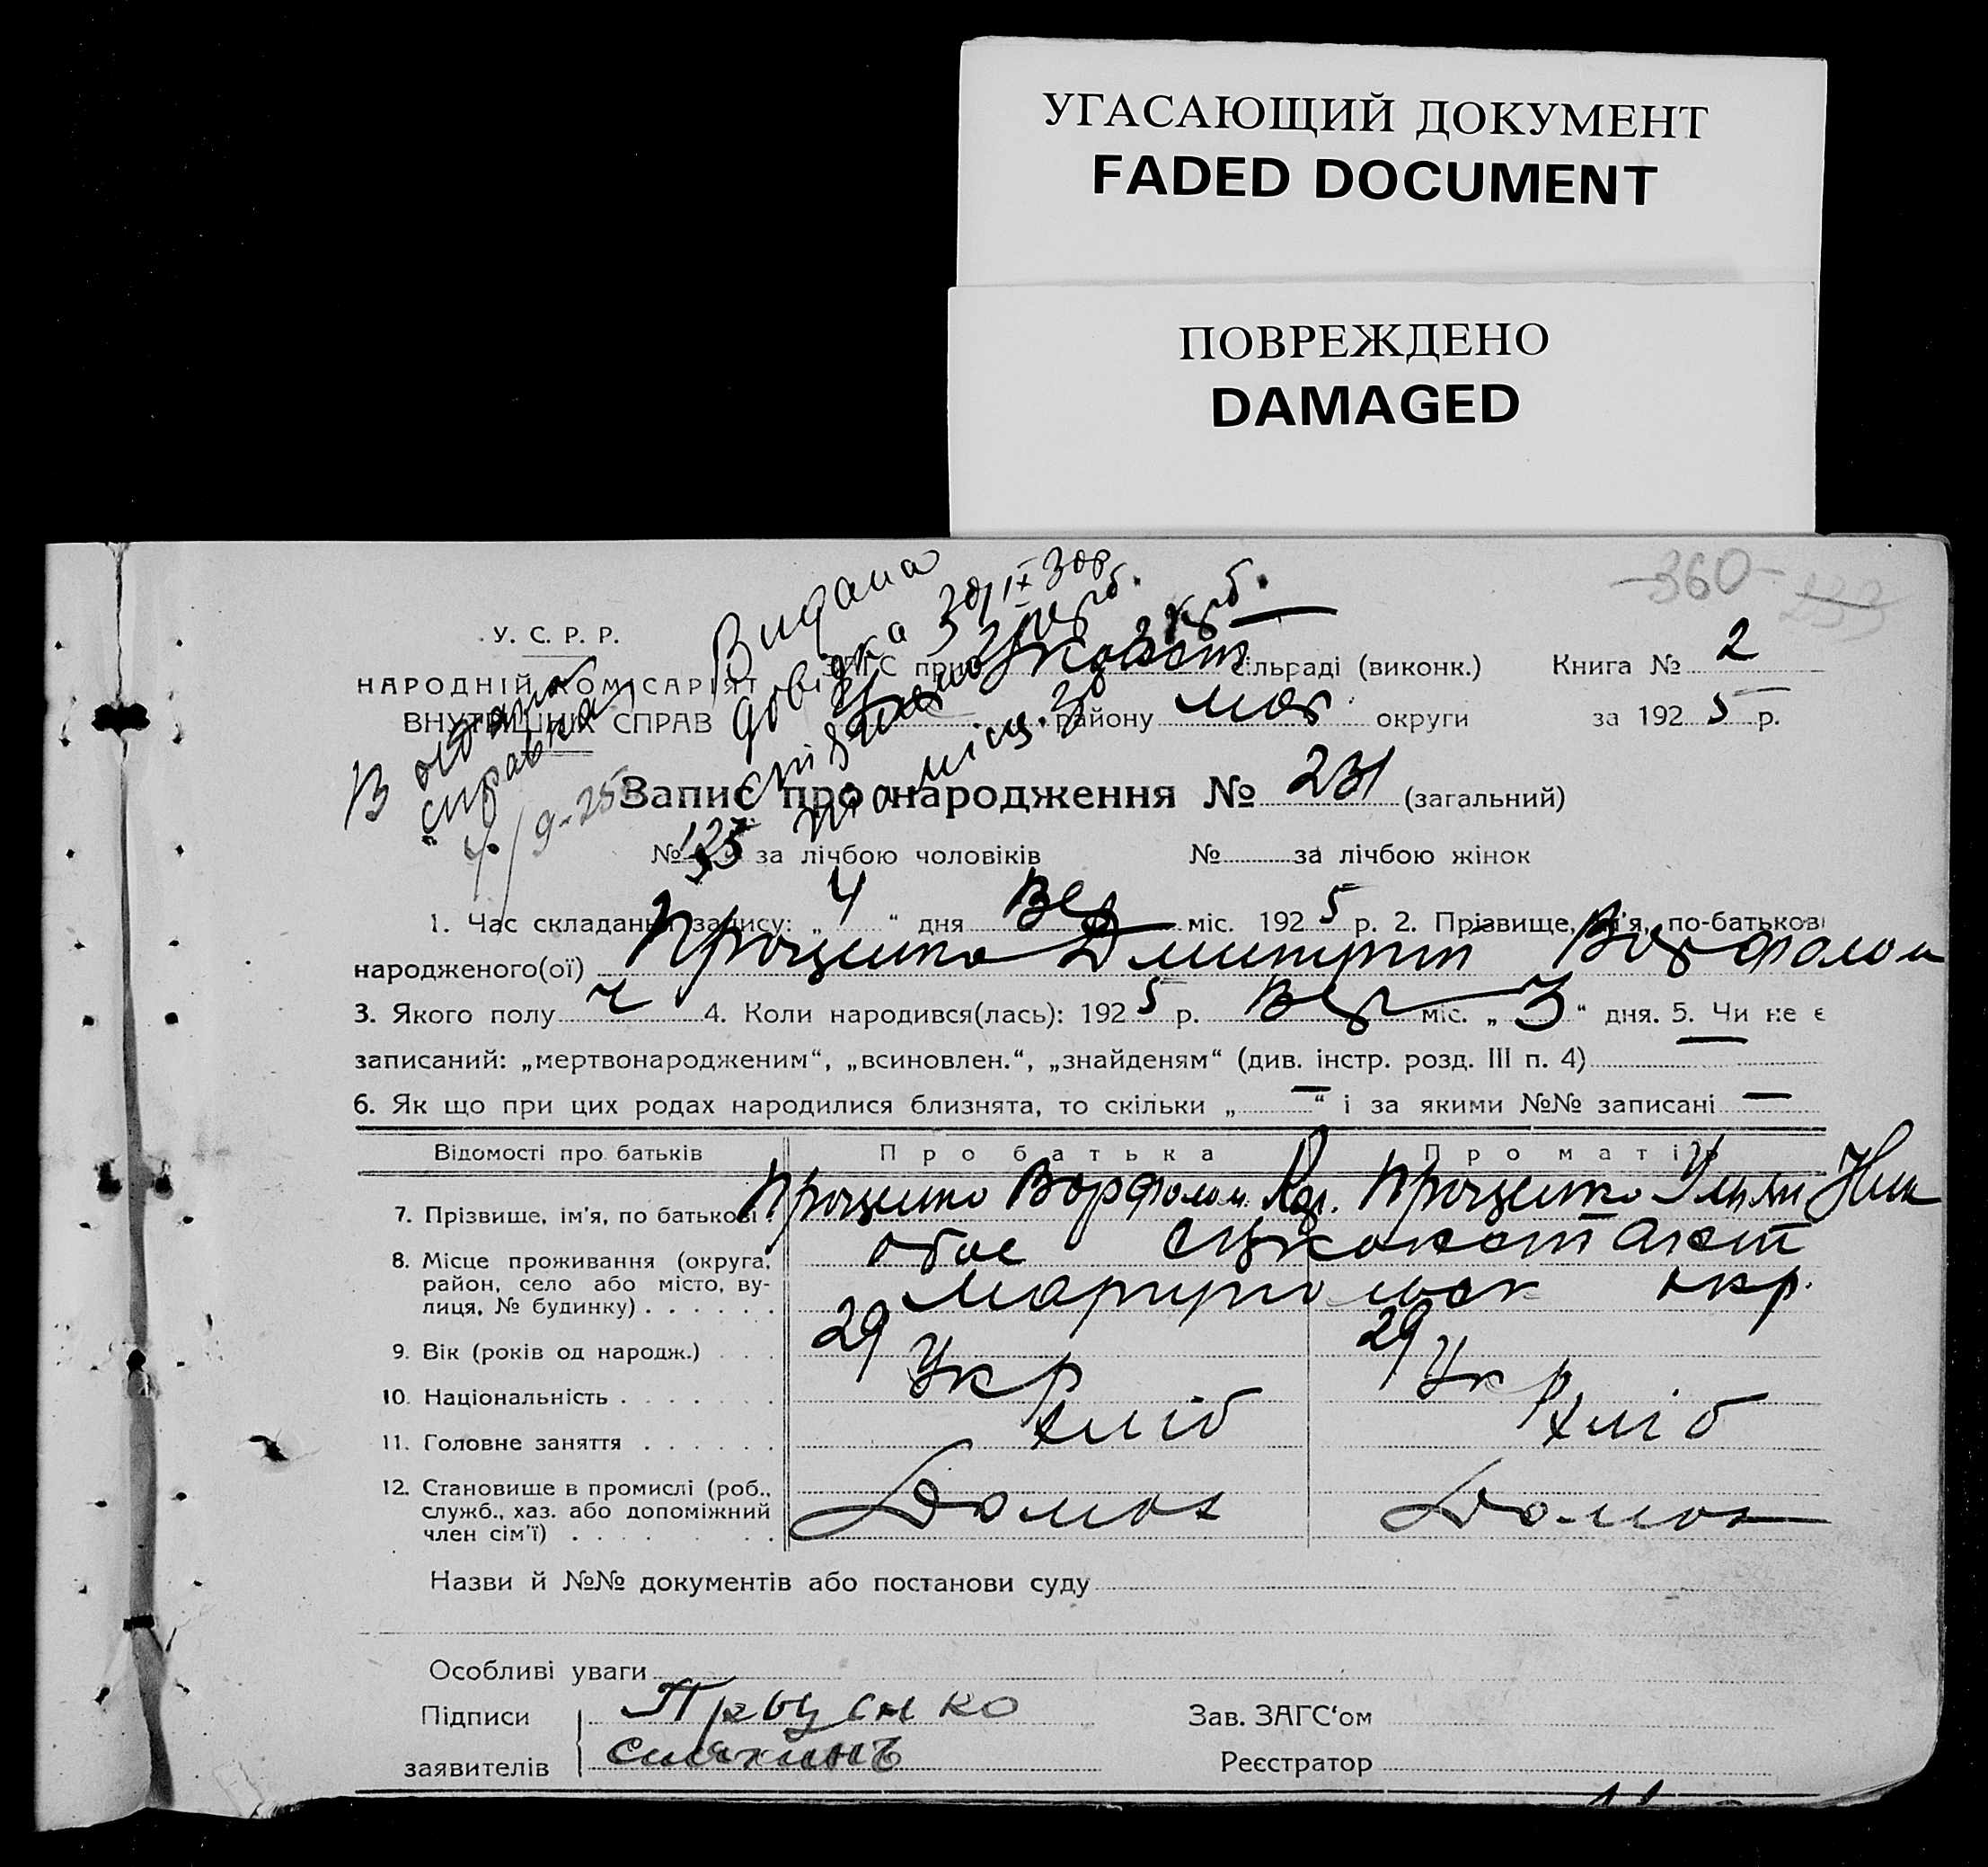 УГАСАЮЩИЙ ДОКУМЕНТ
FADED DOCUMENT
ПОВРЕЖДЕНО
DAMAGED
-360-
У. С. Р. Р.
НАРОДНІЙ КОМІСАРІЯТ
ВНУТРІШНІХ СПРАВ
Видана
довідка
ЗАГС при сільраді (виконк.)
Книга № 2
району мар округи
за 1925 р.
Запис про народження № 231 (загальний)
№ 125 за лічбою чоловіків № за лічбою жінок
1. Час складання запису: „4“ дня Вер міс. 1925 р. 2. Прізвище, ім'я, по-батькові
народженого(ої) Проценко Дмитрий Варфолом
3. Якого полу ч 4. Коли народився(лась): 1925 р. Вер міс. „3“ дня. 5. Чи не є
записаний: „мертвонародженим“, „всиновлен.“, „знайденям“ (див. інстр. розд. III п. 4) —
6. Як що при цих родах народилися близнята, то скільки „—“ і за якими №№ записані —
Відомості про батьків Про батька Про матір
7. Прізвище, ім'я, по батькові Проценко Варфолом Проценко
8. Місце проживання (округа, район, село або місто, вулиця, № будинку) обое
Мариупольск окр.
9. Вік (років од народж.) 29 29
10. Національність Укр Укр
11. Головне заняття хліб хліб
12. Становище в промислі (роб., служб., хаз. або допоміжний член сім'ї) Домох Домох
Назви й №№ документів або постанови суду
Особливі уваги
Підписи Проценко Зав. ЗАГС'ом
заявителів Реєстратор